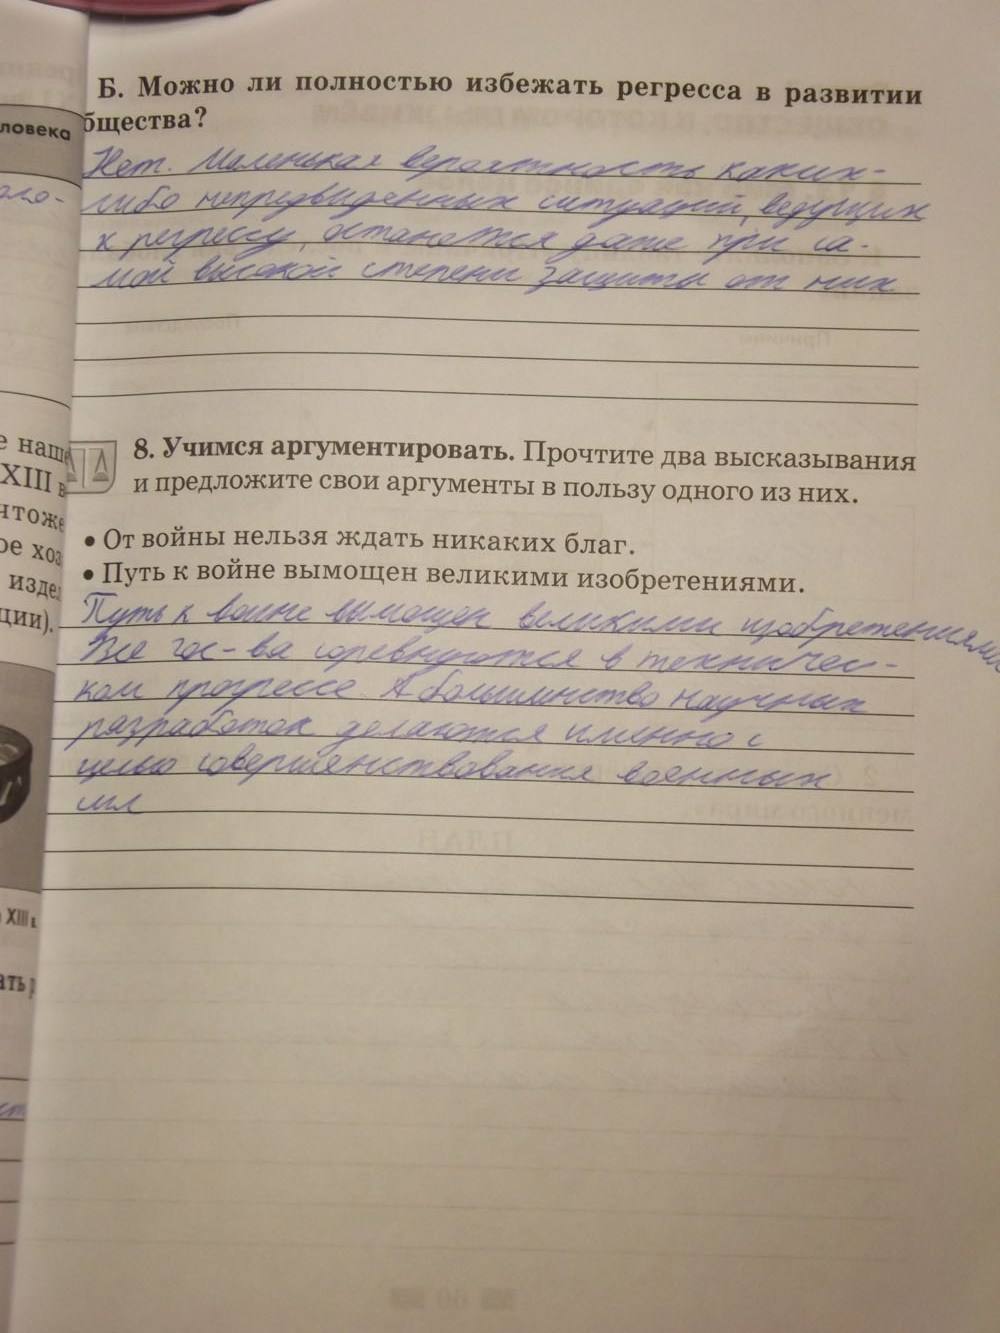 Б. Можно ли полностью избежать регресса в развитии
бщества?
Нет. Маленькая вероятность каких-
либо непредвиденных ситуаций, ведущих
к регрессу, останется даже при са-
мой высокой степени защиты от них
8. Учимся аргументировать. Прочтите два высказывания
и предложите свои аргументы в пользу одного из них.
• От войны нельзя ждать никаких благ.
• Путь к войне вымощен великими изобретениями.
Путь к войне вымощен великими изобретениями
Все гос-ва соревнуются в техничес-
ком прогрессе. А большинство научных
разработок делаются именно с
целью совершенствования военных
сил
ловека
е наше
XIII в
чтоже
ое хоз
изде
ции).
XIII в.
ать р